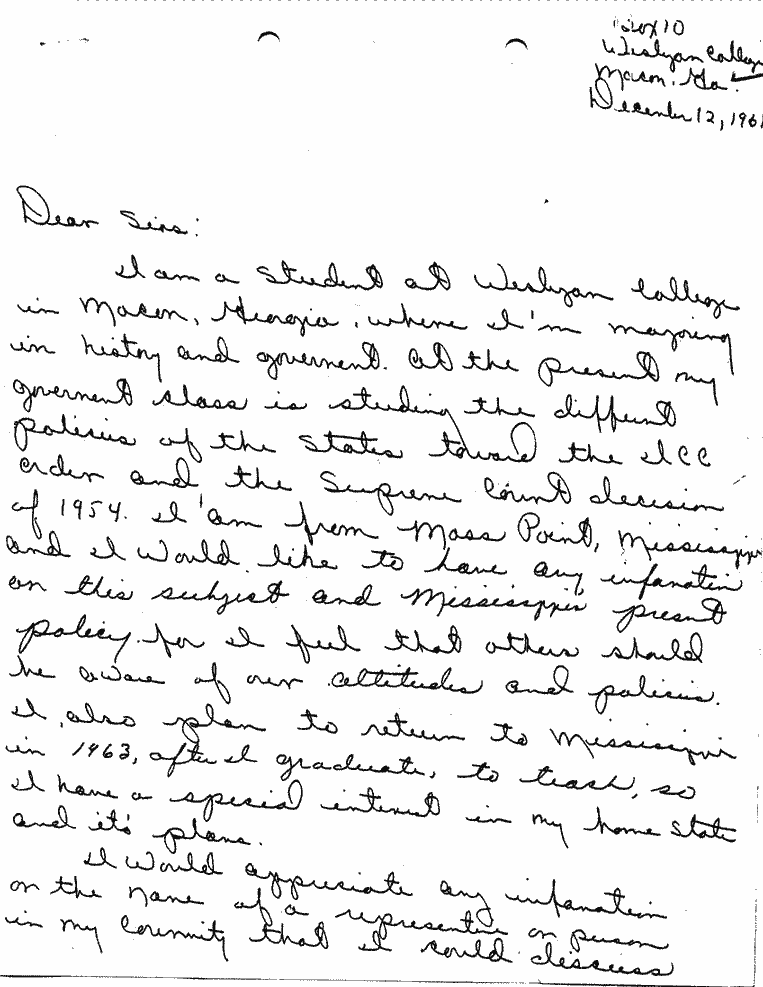 Box 10
Weslyan College
Macon, Ga.
December 12, 1961
Dear Sirs:
I am a student at Weslyan College
in Macon, Georgia, where I'm majoring
in history and goverment. At the present my
goverment class is studing the diffrent
policies of the States toward the ICC
order and the Supreme Count decision
of 1954. I'am from Moss Point, Mississippi
and I would like to have any infamation
on this subject and Mississippi's present
policy for I feel that others should
be aware of our attitudes and policies.
I also plan to return to Mississippi
in 1963, after I graduate, to teach, so
I have a special interest in my home State
and it's plans.
I would appreciate any infamation
or the name of a representive or person
in my communty that I could discuss